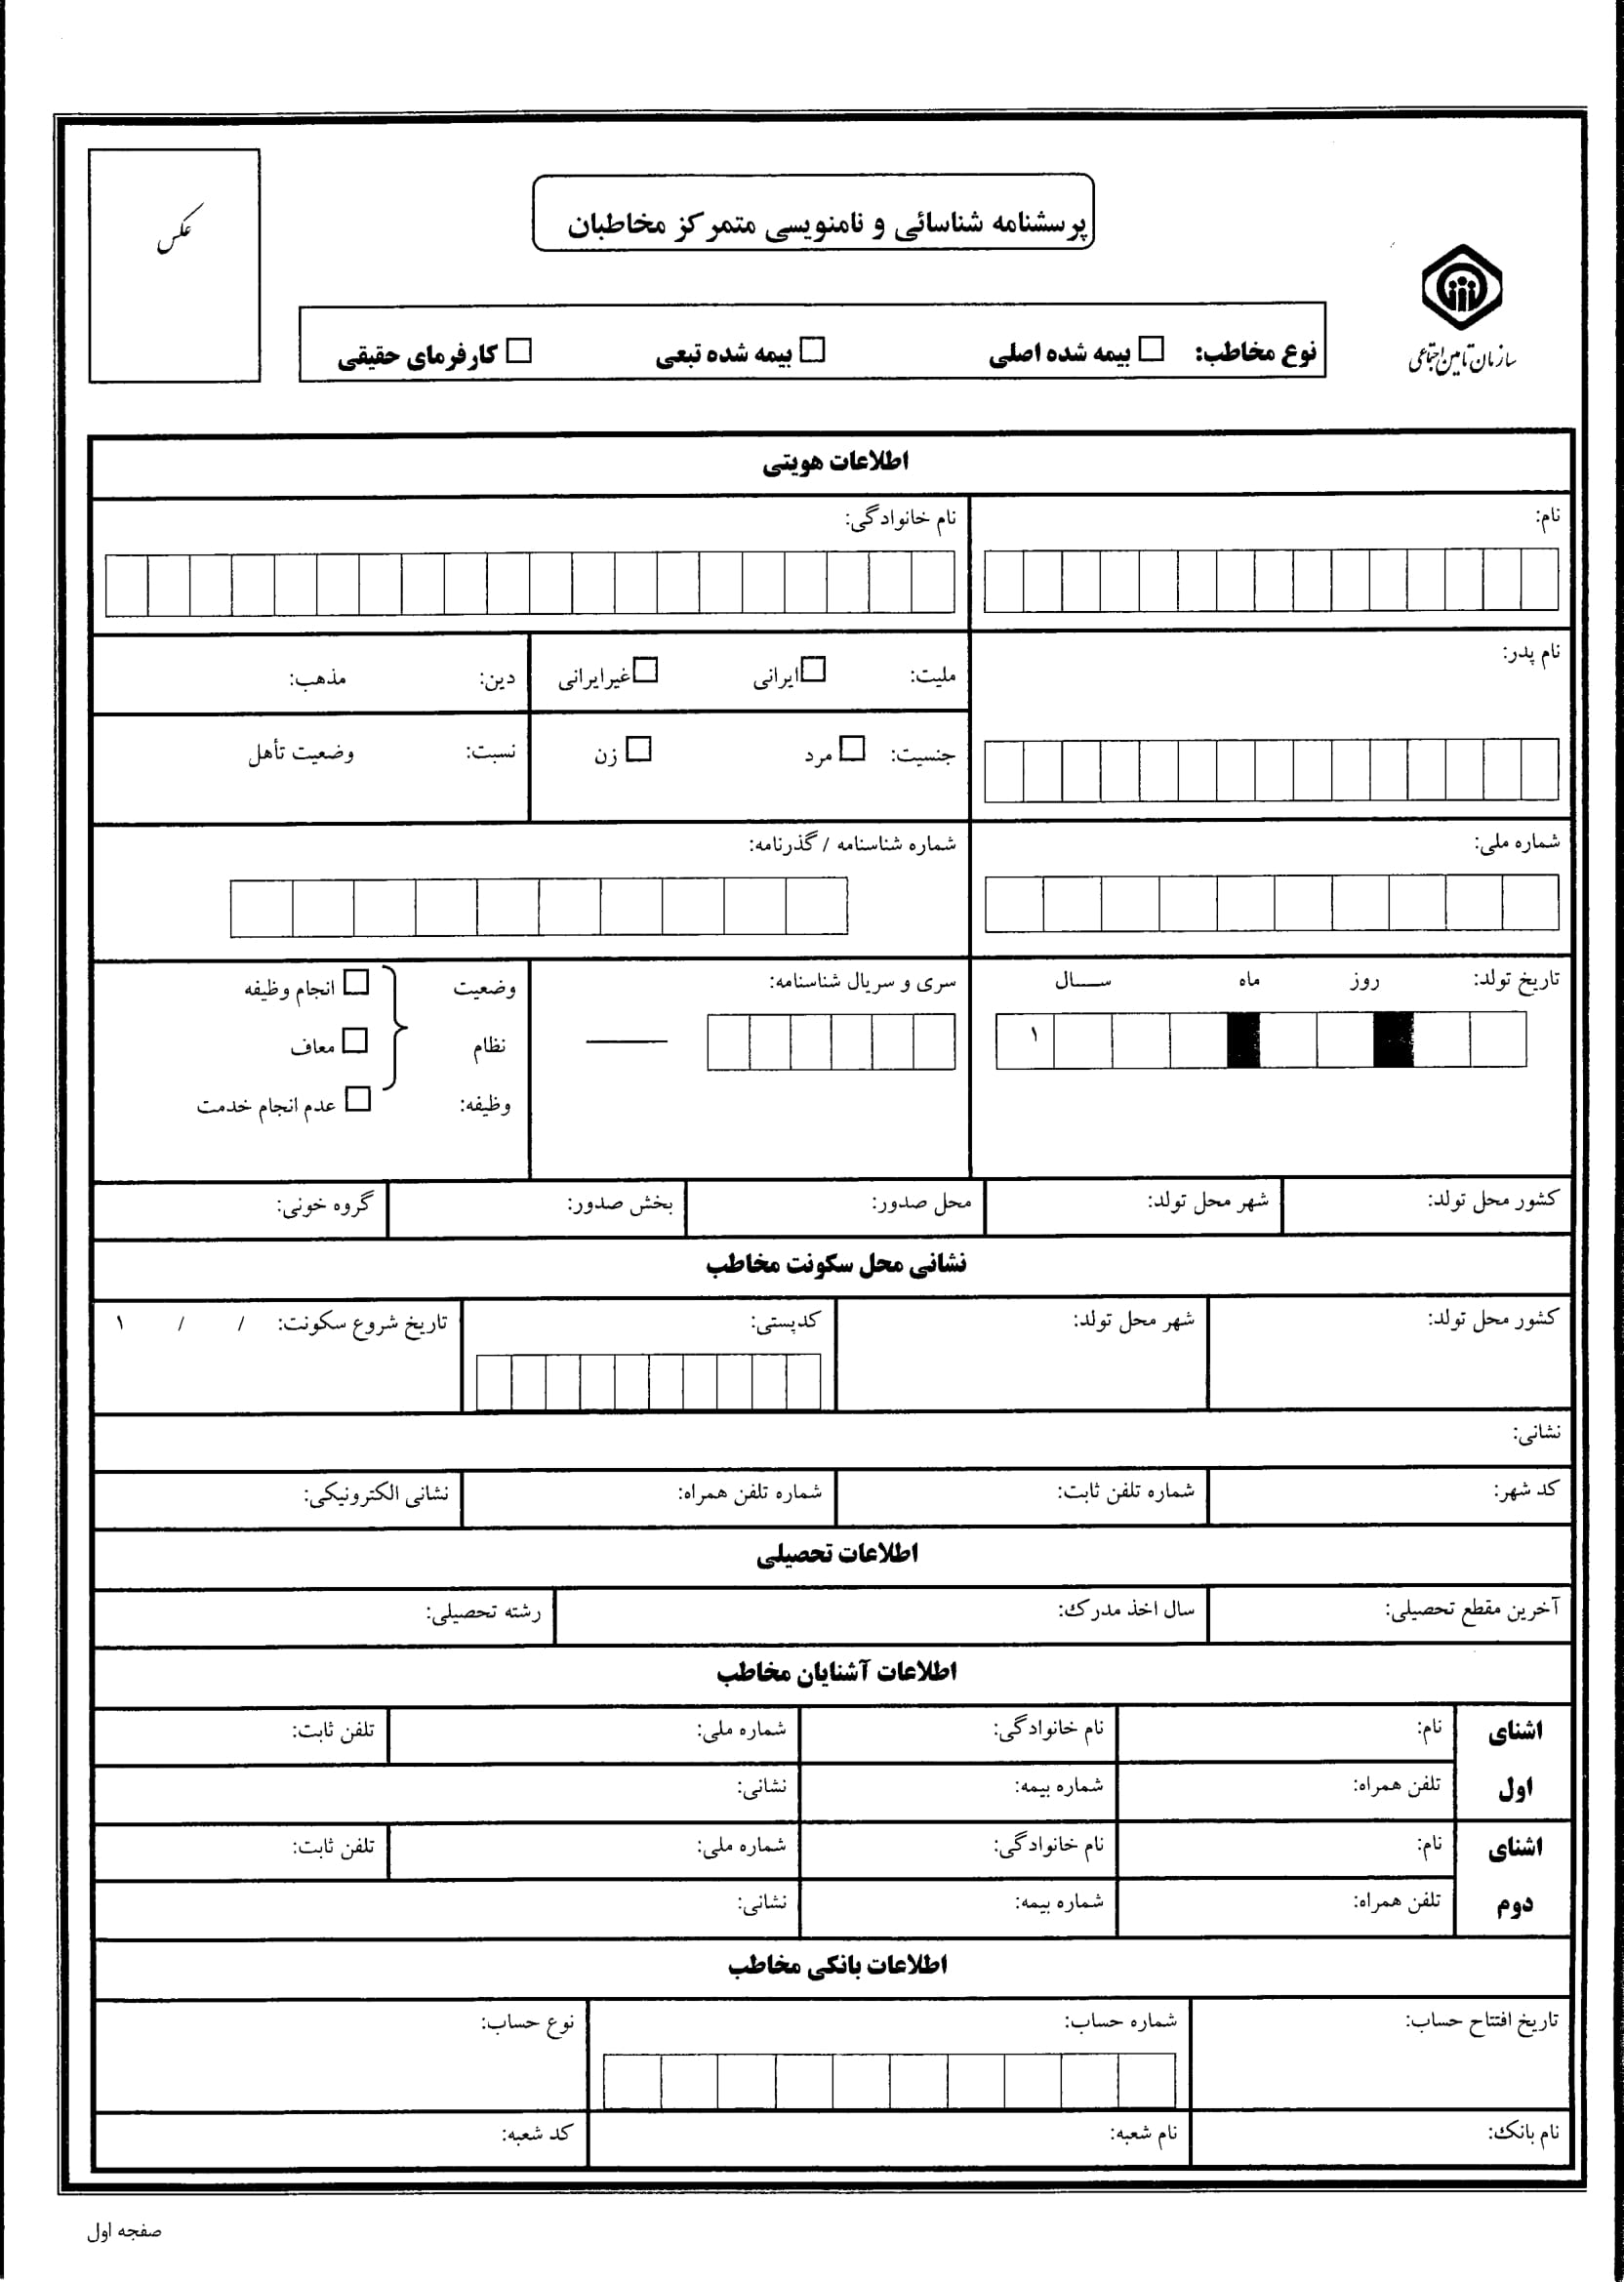 عکس
پرسشنامه شناسائی و نامنویسی متمرکز مخاطبان
سازمان تامین اجتماعی
نوع مخاطب: بیمه شده اصلی بیمه شده تبعی کارفرمای حقیقی
اطلاعات هویتی
نام: نام خانوادگی:
نام پدر: ملیت: ایرانی غیرایرانی دین: مذهب:
جنسیت: مرد زن نسبت: وضعیت تأهل
شماره ملی: شماره شناسنامه / گذرنامه:
تاریخ تولد: روز ماه ســـال سری و سریال شناسنامه: وضعیت انجام وظیفه
۱ نظام معاف
وظیفه: عدم انجام خدمت
کشور محل تولد: شهر محل تولد: محل صدور: بخش صدور: گروه خونی:
نشانی محل سکونت مخاطب
کشور محل تولد: شهر محل تولد: کدپستی: تاریخ شروع سکونت: / / ۱
نشانی:
کد شهر: شماره تلفن ثابت: شماره تلفن همراه: نشانی الکترونیکی:
اطلاعات تحصیلی
آخرین مقطع تحصیلی: سال اخذ مدرک: رشته تحصیلی:
اطلاعات آشنایان مخاطب
اشنای نام: نام خانوادگی: شماره ملی: تلفن ثابت:
اول تلفن همراه: شماره بیمه: نشانی:
اشنای نام: نام خانوادگی: شماره ملی: تلفن ثابت:
دوم تلفن همراه: شماره بیمه: نشانی:
اطلاعات بانکی مخاطب
تاریخ افتتاح حساب: شماره حساب: نوع حساب:
نام بانک: نام شعبه: کد شعبه:
صفجه اول